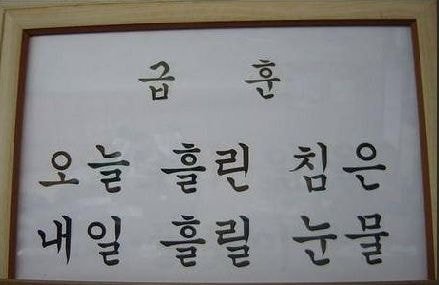 급 훈
오늘 흘린 침은
내일 흘릴 눈물